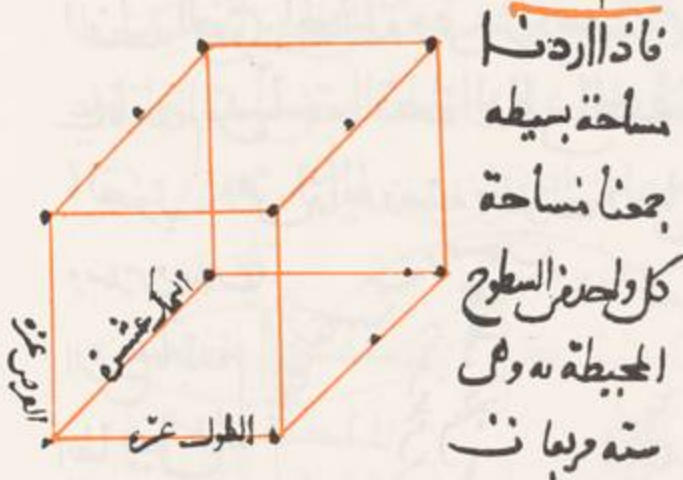 فاذا اردنا
مساحة بسيطه
جمعنا مساحة
كل واحد من السطوح
المحيطة به وهى
سته مربعات
السمك عشرة
العرض عشرة
الطول عشرة